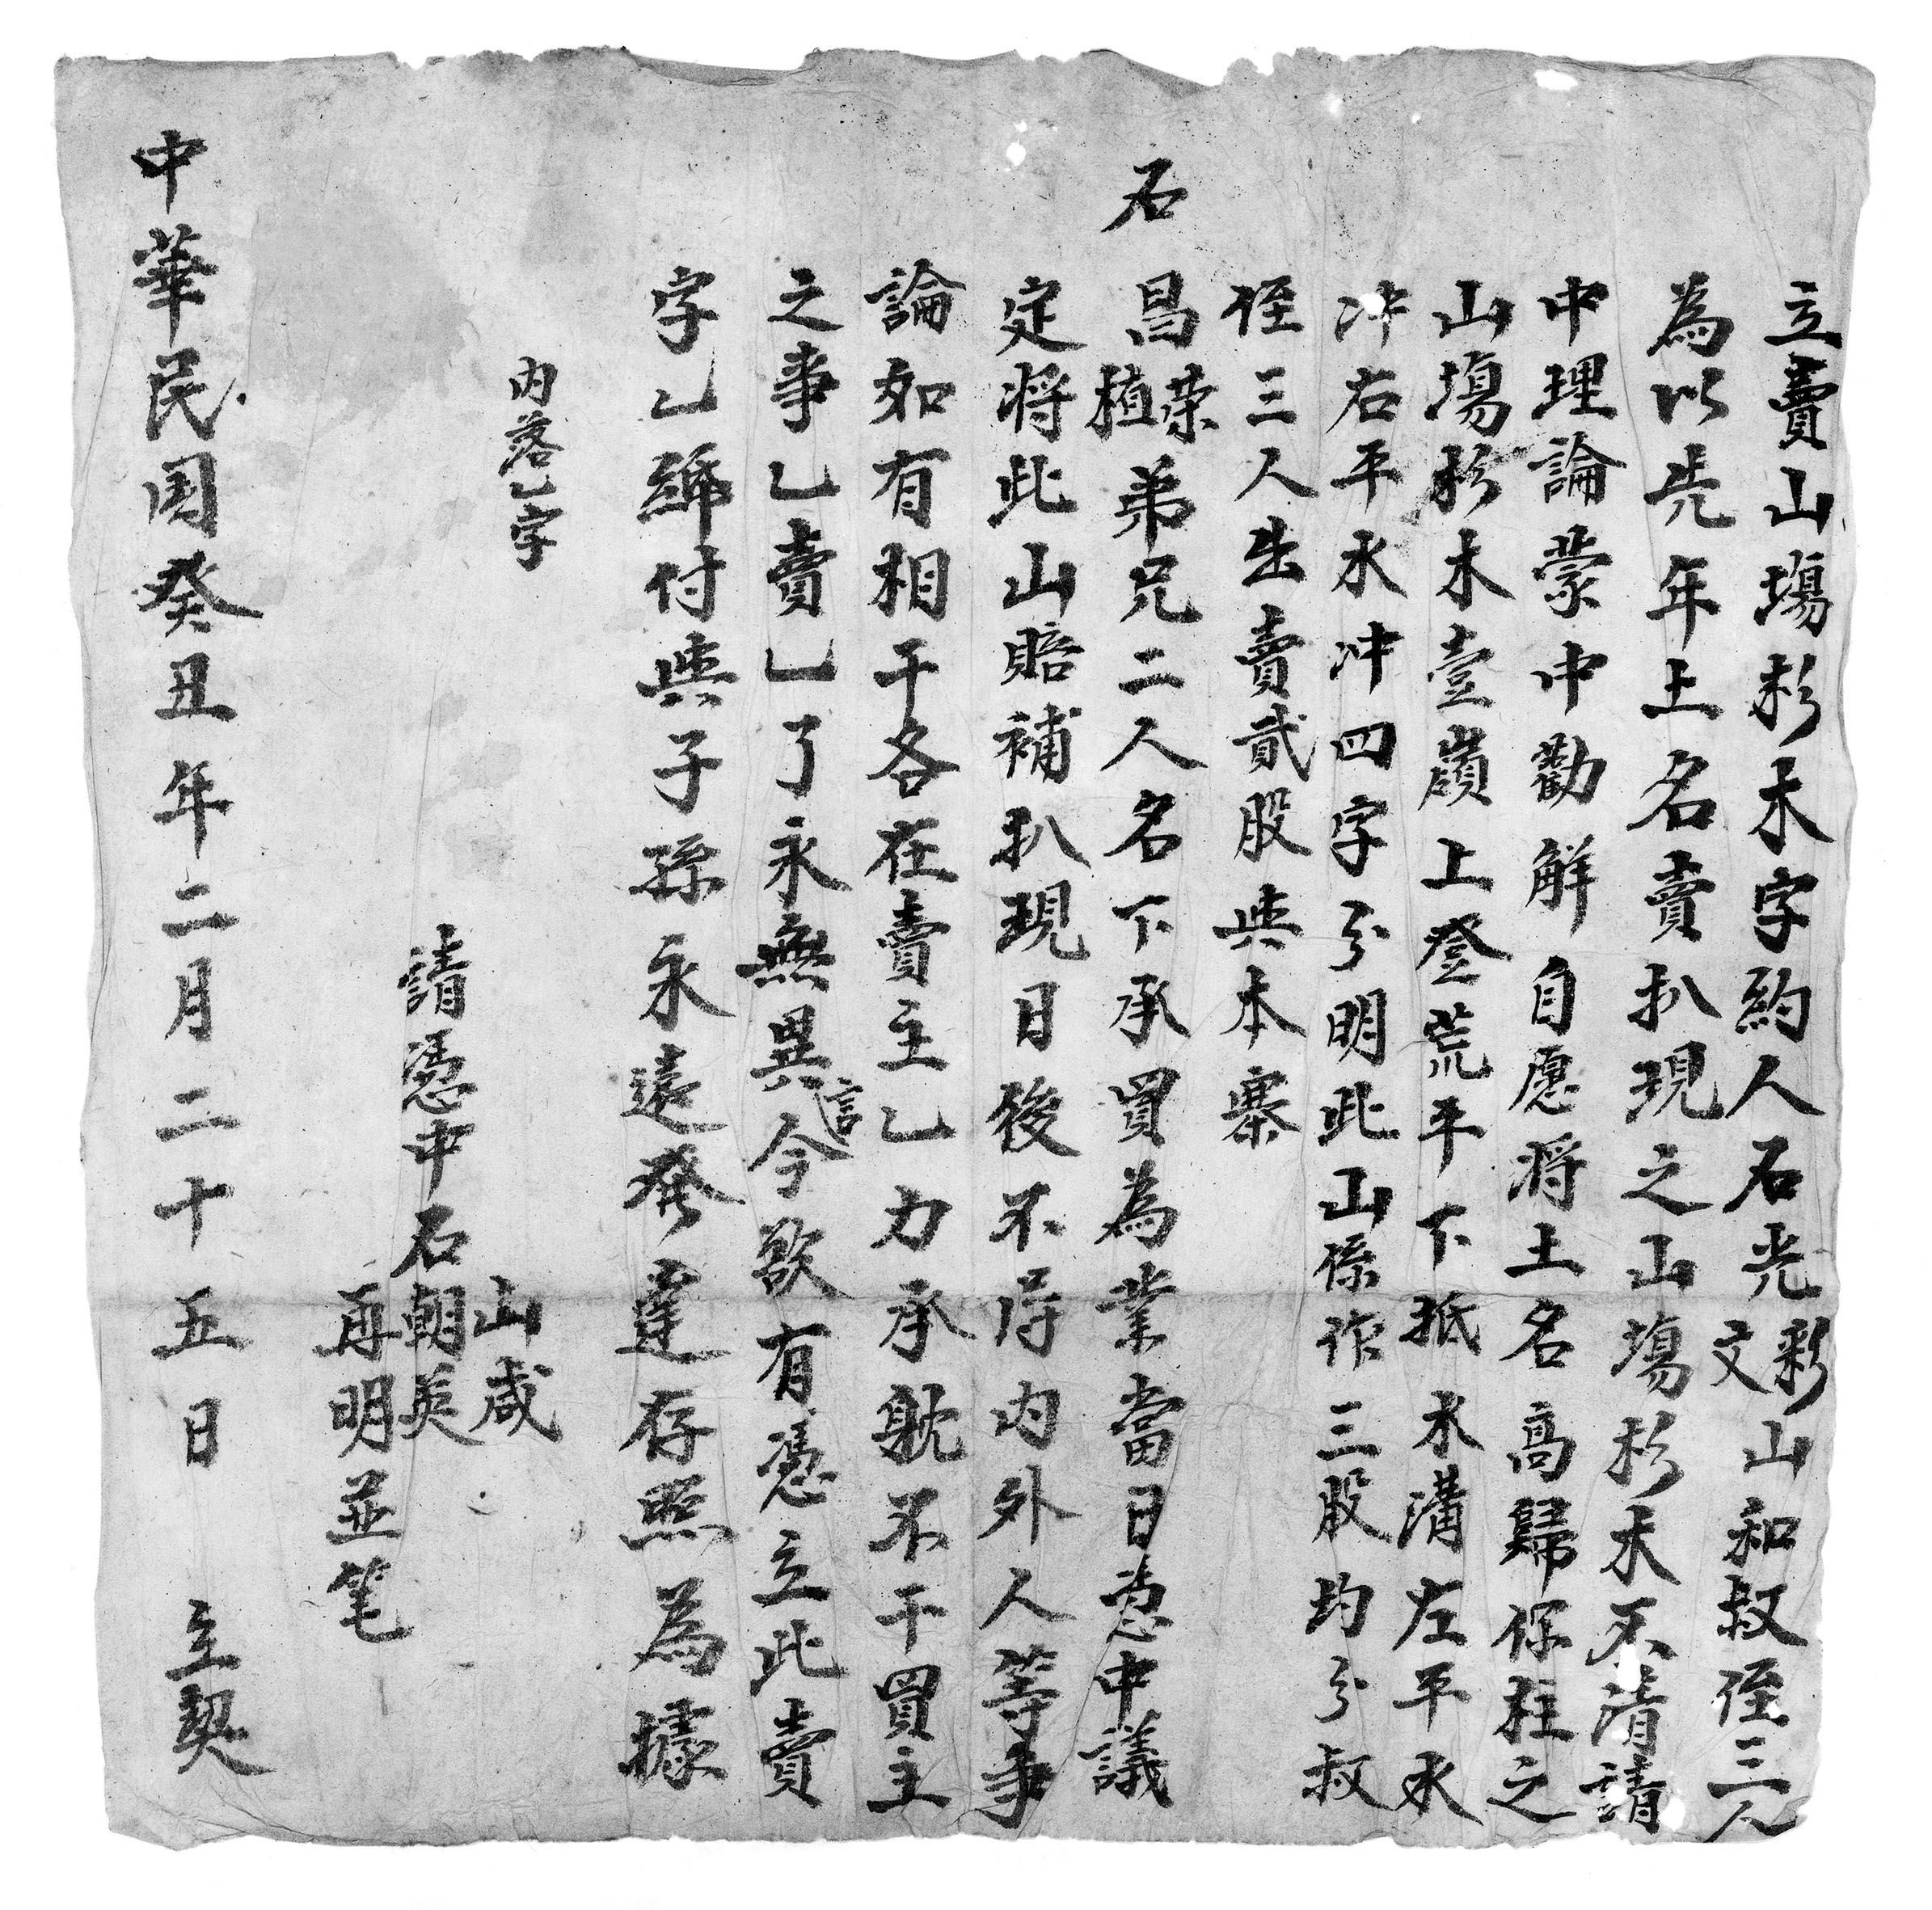 立賣山塲杉木字約人石光彩文山和叔侄三人
為以先年土名賣扒現之山塲杉木不清請
中理論蒙中勸解自愿將土名高歸保柱之
山塲杉木壹嶺上登荒平下抵水溝左平水
冲右平水冲四字分明此山係作三股均分叔
侄三人出賣貳股與本寨
石昌荣植弟兄二人名下承買為業當日憑中議
定將此山賠補扒現日後不得内外人等爭
論如有相干各在賣主乙力承躭不干買主
之事乙賣乙了永無異言今欲有憑立此賣
字乙𥿄付與子孫永遠發達存照為據
内落乙字
山咸
請憑中石朝英
再明並笔
中華民国癸丑年二月二十五日 立契